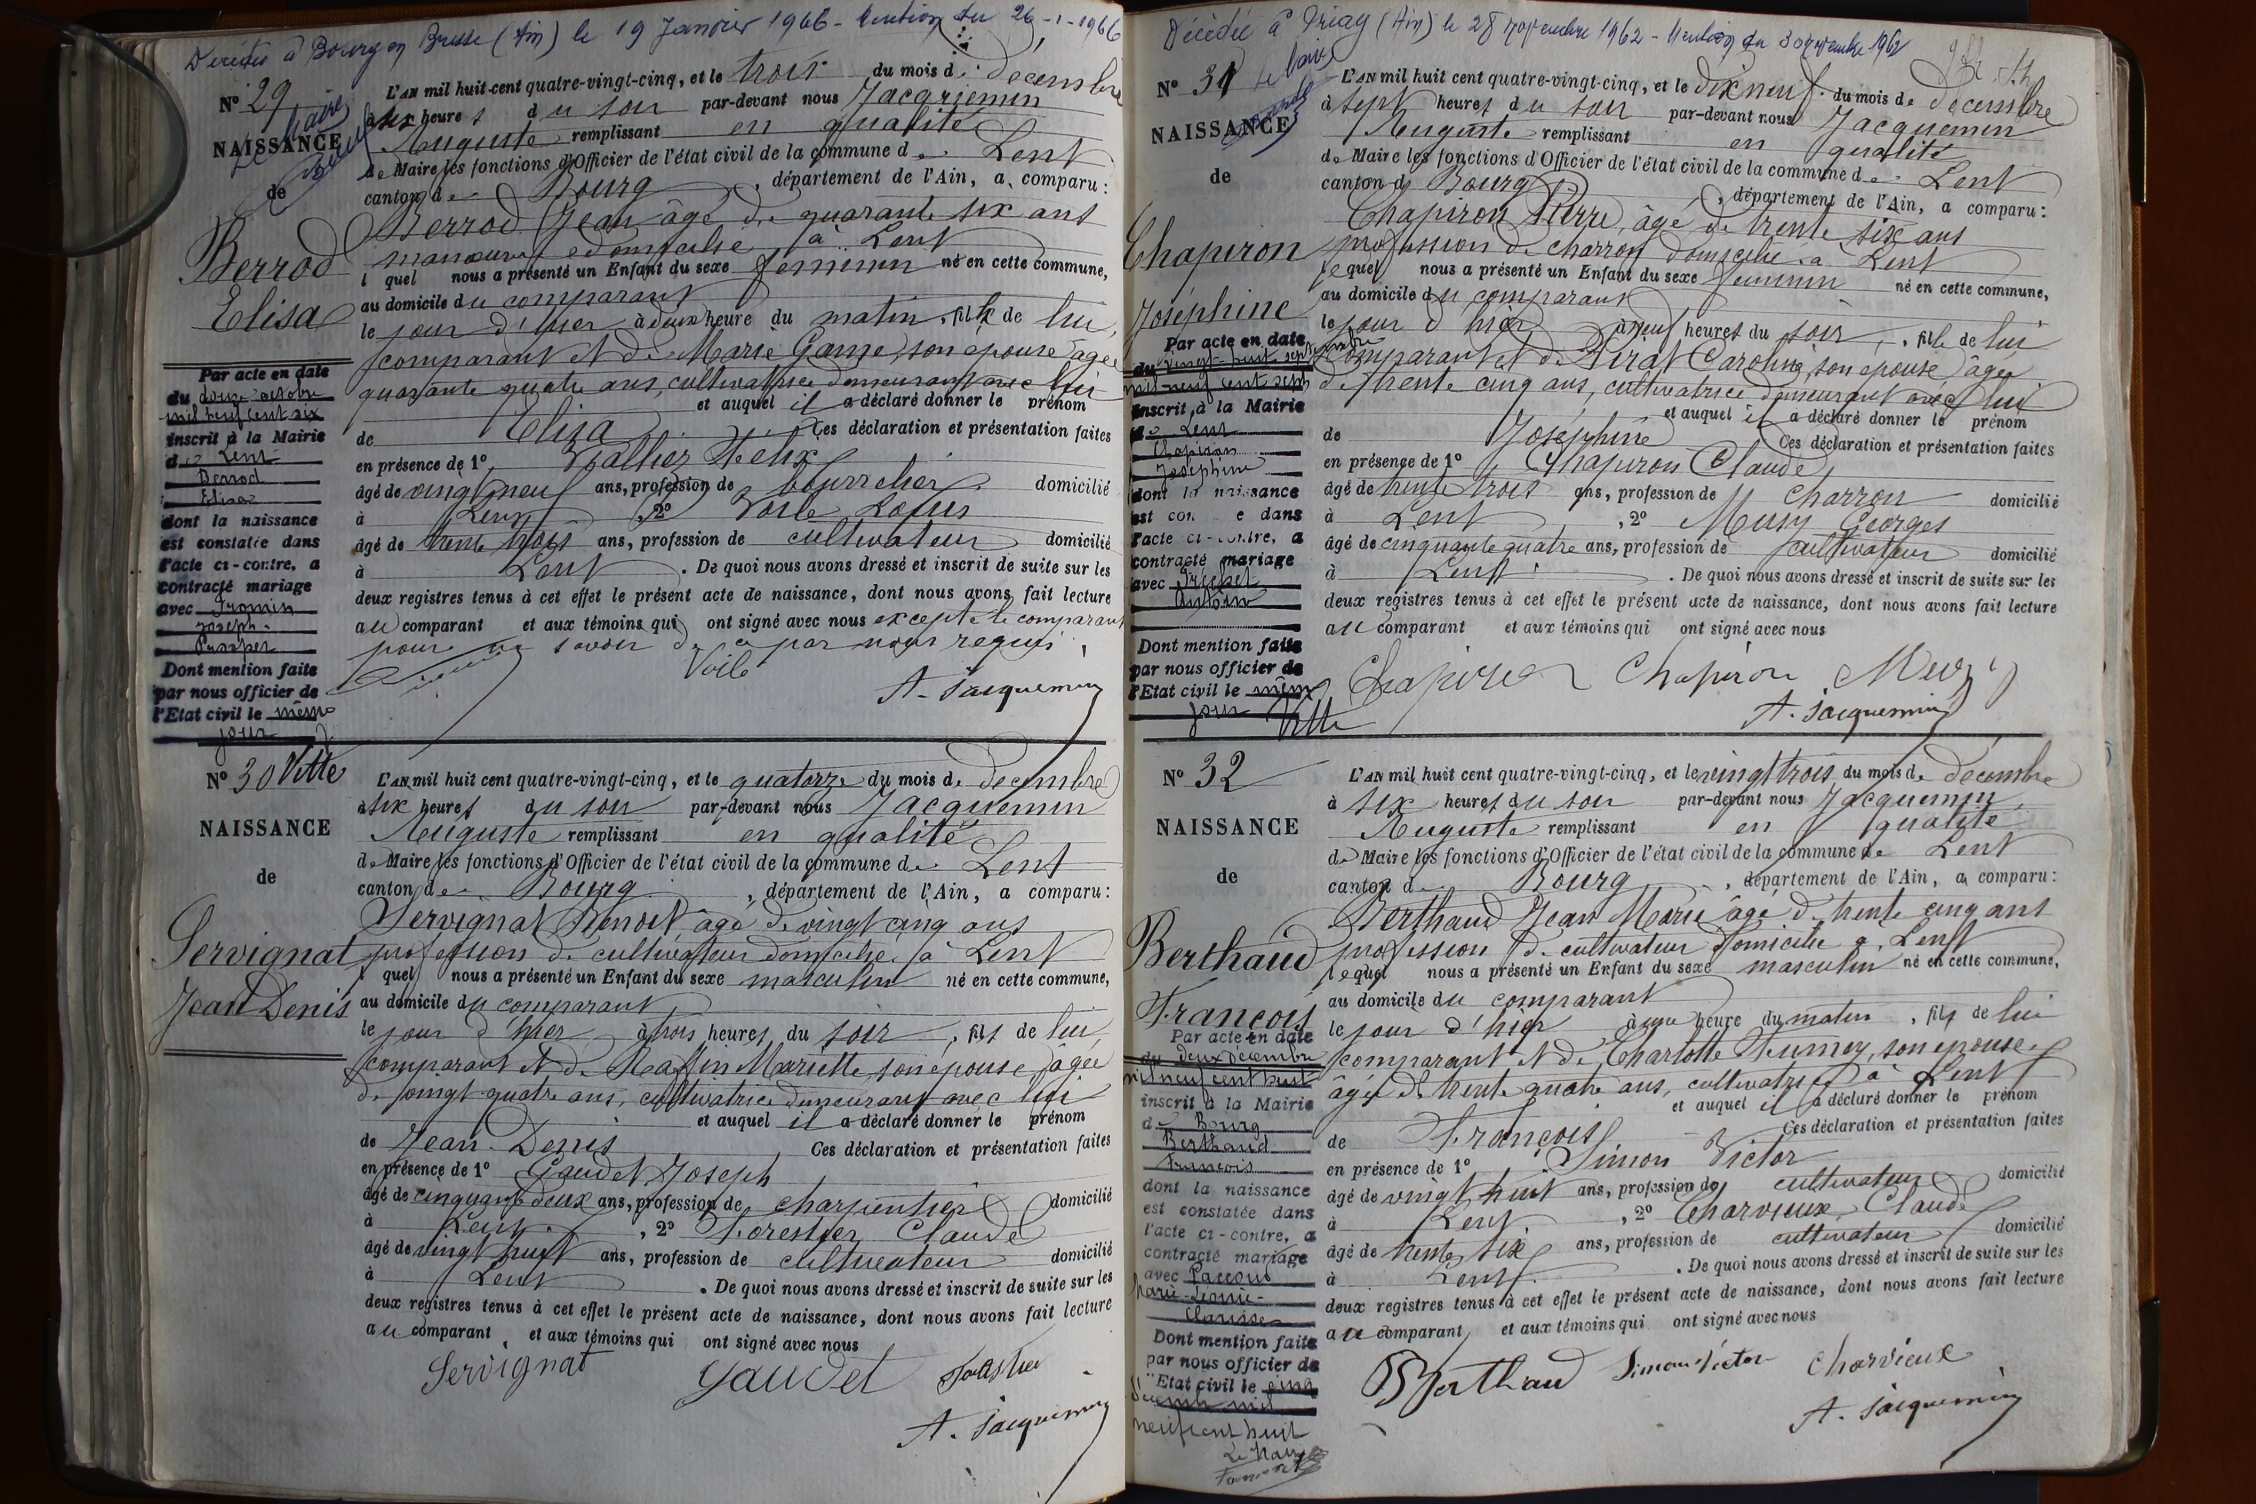 Décédée à Bourg en Bresse (Ain) le 19 Janvier 1966 - Mention du 26-1-1966
N° 29
NAISSANCE
de
Berrod
Elisa
Par acte en date
du douze octobre
mil neuf cent six
inscrit à la Mairie
de Lent
Berrod
Elisa
dont la naissance
est constatée dans
l'acte ci-contre, a
contracté mariage
avec Fromin
Joseph
Prosper
Dont mention faite
par nous officier de
l'Etat civil le même
jour
L'AN mil huit cent quatre-vingt-cinq, et le trois du mois de décembre
à six heures du soir par-devant nous Jacquemin
Auguste remplissant en qualité
de Maire les fonctions d'Officier de l'état civil de la commune de Lent
canton de Bourg, département de l'Ain, a comparu :
Berrod Jean âgé de quarante six ans
manœuvre domicilié à Lent
lequel nous a présenté un Enfant du sexe féminin né en cette commune,
au domicile du comparant
le jour d'hier à deux heure du matin, fille de lui,
comparant et de Marie Game, son épouse âgée
quarante quatre ans, cultivatrice demeurant avec lui
et auquel il a déclaré donner le prénom
de Elisa Ces déclaration et présentation faites
en présence de 1° Vallier Félix
âgé de vingt neuf ans, profession de bourrelier domicilié
à Lent, 2° Voile Louis
âgé de trente trois ans, profession de cultivateur domicilié
à Lent. De quoi nous avons dressé et inscrit de suite sur les
deux registres tenus à cet effet le présent acte de naissance, dont nous avons fait lecture
au comparant et aux témoins qui ont signé avec nous excepté le comparant
pour ne savoir de ce par nous requis.
Voile
A. Jacquemin
N° 30 Vitte
NAISSANCE
de
Servignat
Jean Denis
L'AN mil huit cent quatre-vingt-cinq, et le quatorze du mois de décembre
à six heures du soir par-devant nous Jacquemin
Auguste remplissant en qualité
de Maire les fonctions d'Officier de l'état civil de la commune de Lent
canton de Bourg, département de l'Ain, a comparu :
Servignat Benoit âgé de vingt cinq ans
profession de cultivateur domicilié à Lent
lequel nous a présenté un Enfant du sexe masculin né en cette commune,
au domicile du comparant
le jour d'hier à trois heures du soir, fils de lui
comparant et de Raffin Mariette, son épouse, âgée
de vingt quatre ans, cultivatrice demeurant avec lui
et auquel il a déclaré donner le prénom
de Jean Denis Ces déclaration et présentation faites
en présence de 1° Gaudet Joseph
âgé de cinquante deux ans, profession de charpentier domicilié
à Lent, 2° Forestier Claude
âgé de vingt huit ans, profession de cultivateur domicilié
à Lent. De quoi nous avons dressé et inscrit de suite sur les
deux registres tenus à cet effet le présent acte de naissance, dont nous avons fait lecture
au comparant et aux témoins qui ont signé avec nous
Servignat Gaudet Forestier
A. Jacquemin
Décédée à Priay (Ain) le 28 novembre 1962 - Mention du 30 novembre 1962
N° 31 Le Maire
NAISSANCE
de
Chapiron
Joséphine
Par acte en date
du vingt-huit septembre
mil neuf cent sept
inscrit à la Mairie
de Lent
Chapiron
Joséphine
dont la naissance
est con e dans
l'acte ci-contre, a
contracté mariage
avec Fréchet
Antoine
Dont mention faite
par nous officier de
l'Etat civil le même
jour Vitte
L'AN mil huit cent quatre-vingt-cinq, et le dix neuf du mois de décembre
à sept heures du soir par-devant nous Jacquemin
Auguste remplissant en qualité
de Maire les fonctions d'Officier de l'état civil de la commune de Lent
canton de Bourg, département de l'Ain, a comparu :
Chapiron Pierre, âgé de trente six ans
profession de charron domicilié à Lent
lequel nous a présenté un Enfant du sexe féminin né en cette commune,
au domicile du comparant
le jour d'hier à neuf heures du soir, fille de lui
comparant et de Pirat Caroline, son épouse âgée
de trente cinq ans, cultivatrice demeurant avec lui
et auquel il a déclaré donner le prénom
de Joséphine Ces déclaration et présentation faites
en présence de 1° Chapiron Claude
âgé de trente trois ans, profession de charron domicilié
à Lent, 2° Musy Georges
âgé de cinquante quatre ans, profession de cultivateur domicilié
à Lent. De quoi nous avons dressé et inscrit de suite sur les
deux registres tenus à cet effet le présent acte de naissance, dont nous avons fait lecture
au comparant et aux témoins qui ont signé avec nous
Chapiron Chapiron Musy
A. Jacquemin
N° 32
NAISSANCE
de
Berthaud
François
Par acte en date
du deux décembre
mil neuf cent huit
inscrit à la Mairie
de Bourg
Berthaud
François
dont la naissance
est constatée dans
l'acte ci-contre, a
contracté mariage
avec Paccoud
Marie-Leonie-
Clarisse
Dont mention faite
par nous officier de
l'Etat civil le cinq
décembre mil
neuf cent huit
Le Maire
L'AN mil huit cent quatre-vingt-cinq, et le vingt trois du mois de décembre
à six heures du soir par-devant nous Jacquemin
Auguste remplissant en qualité
de Maire les fonctions d'Officier de l'état civil de la commune de Lent
canton de Bourg, département de l'Ain, a comparu :
Berthaud Jean Marie âgé de trente cinq ans
profession de cultivateur domicilié à Lent
lequel nous a présenté un Enfant du sexe masculin né en cette commune,
au domicile du comparant
le jour d'hier à une heure du matin, fils de lui
comparant et de Charlotte Humey, son épouse
âgée de trente quatre ans, cultivatrice à Lent
et auquel il a déclaré donner le prénom
de François Ces déclaration et présentation faites
en présence de 1° Simon Victor
âgé de vingt huit ans, profession de cultivateur domicilié
à Lent, 2° Charvieux Claude
âgé de trente six ans, profession de cultivateur domicilié
à Lent. De quoi nous avons dressé et inscrit de suite sur les
deux registres tenus à cet effet le présent acte de naissance, dont nous avons fait lecture
au comparant et aux témoins qui ont signé avec nous
Berthaud Simon Victor Charvieux
A. Jacquemin